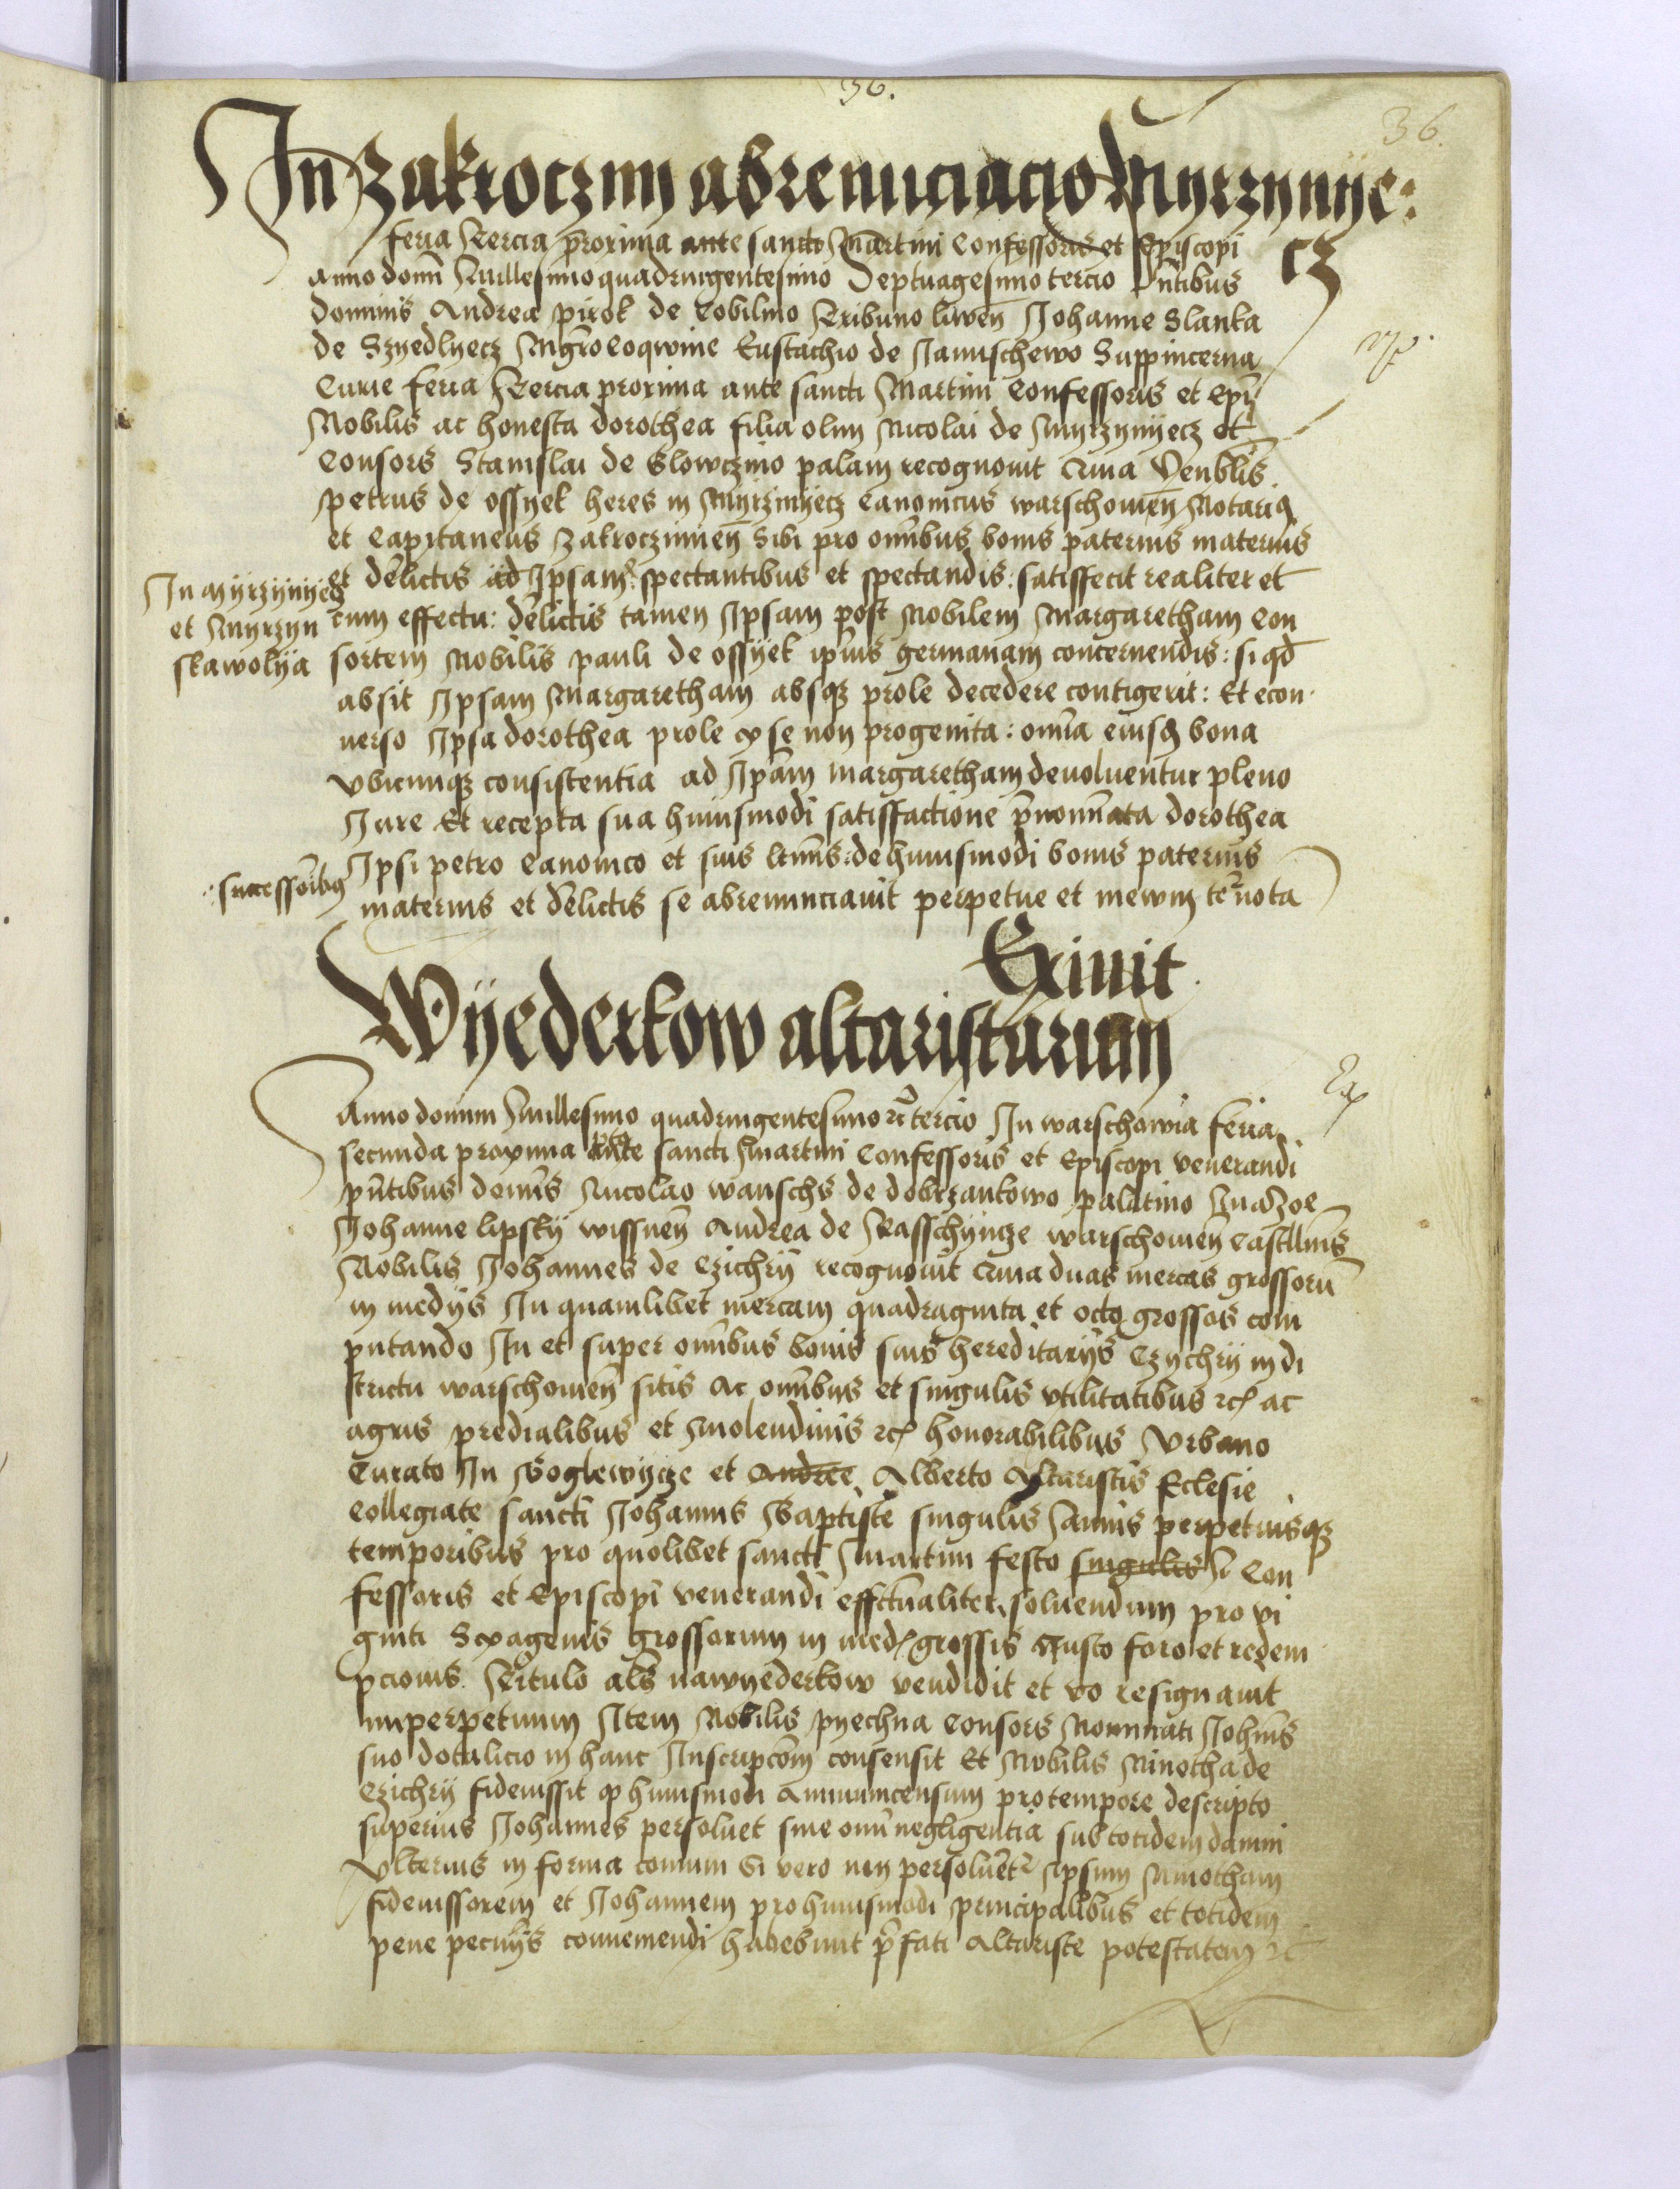 36.
36.
In Zakroczim abrenunciacio Myrzynye:
cz
feria Tercia proxima ante sancti Martini Confessoris et Episcopi
anno domi Millesimo quadringentesimo Septuagesimo tercio pntibus
dominis Andrea pirok de Cobilino Tribuno liwen Johanne Slanka
de Szyedlyecz Eustachio de Januschewo Suppincerna
Curie feria Tercia proxima ante sancti Martini Confessoris et Epi
Nobilis ac honesta dorothea filia olim Nicolai de Myrzynyecz et
Consors Stanislai de Glowczino palam recognouit Quia Venblis
petrus de ossyek heres in Myrzinyecz Canonicus warschouien Notarius
et Capitaneus Zakroczimien Sibi pro omnibus bonis paternis maternis
et delictis ad Ipsam spectantibus et spectandis: satisfecit realiter et
cum effectu: delictis tamen Ipsam post Nobilem Margaretham Con
sortem Nobilis pauli de ossyek ipius germanam concernendis: si qd
absit Ipsam Margaretham absque prole decedere contigerit: Et econ
uerso Ipsa dorothea prole ex se non progenita: omia eiusque bona
vbicunque consistentia ad Ipam Margaretham deuoluentur pleno
Jure Et recepta sua huiusmodi satisfactione pnominata dorothea
Ipsi petro Canonico et suis ltimis: de huiusmodi bonis paternis
maternis et delictis se abrenunciauit perpetue et in ewm ter nota
In Myrzynyecz
et Myrzyn
skawolya
: successoribus
Exiuit
Wyederkow altaristarum
Anno domini Millesimo quadringentesimo rc tercio In warschowia feria
secunda proxima ante sancti Martini Confessoris et Episcopi venerandi
pntibus domis Nicolao wanschs de dobrzankowo palatino Mazoe
Johanne lipsky wissnen Andrea de Rasschyncze warschouien Castllnis
Nobilis Johannes de Czichry recognouit Quia duas mercas grossoru
in medys In quamlibet mercam quadraginta et octo grossos com
putando In et super omnibus bonis suis hereditarys Czychry in di
strictu warschouien sitis ac omnibus et singulis vtilitatibus rc ac
agris predialibus et Molendinis rc honorabilibus Vrbano
Curato In Goglewycze et Andree Alberto Altaristis Eclesie
Collegiate sancti Johannis Baptiste singulis Annis perpetuisque
temporibus pro quolibet sancti Martini festo singulis Con
fessoris et Episcopi venerandi effctualiter soluendum pro vi
ginti Sexagenis grossorum in med grossis Justo foro et redem
pcionis Titulo als nawyederkow vendidit et vo resignauit
inperpetuum Item Nobilis pyechna Consors Nominati Johnis
suo dotalicio in hanc Inscripcom consensit Et Nobilis Ninotha de
Czichry fideiussit quod huiusmodi Annuumcensum pro tempore descripto
superius Johannes persoluet sine omi negligentia sub totidem damni
Vlterius in forma comuni Si vero non persoluetr Ipsum Ninotham
fideiussorem et Johannem pro huiusmodi principalibus et totidem
pene pecuniis conueniendi habebunt pfati Altariste potestatem rc